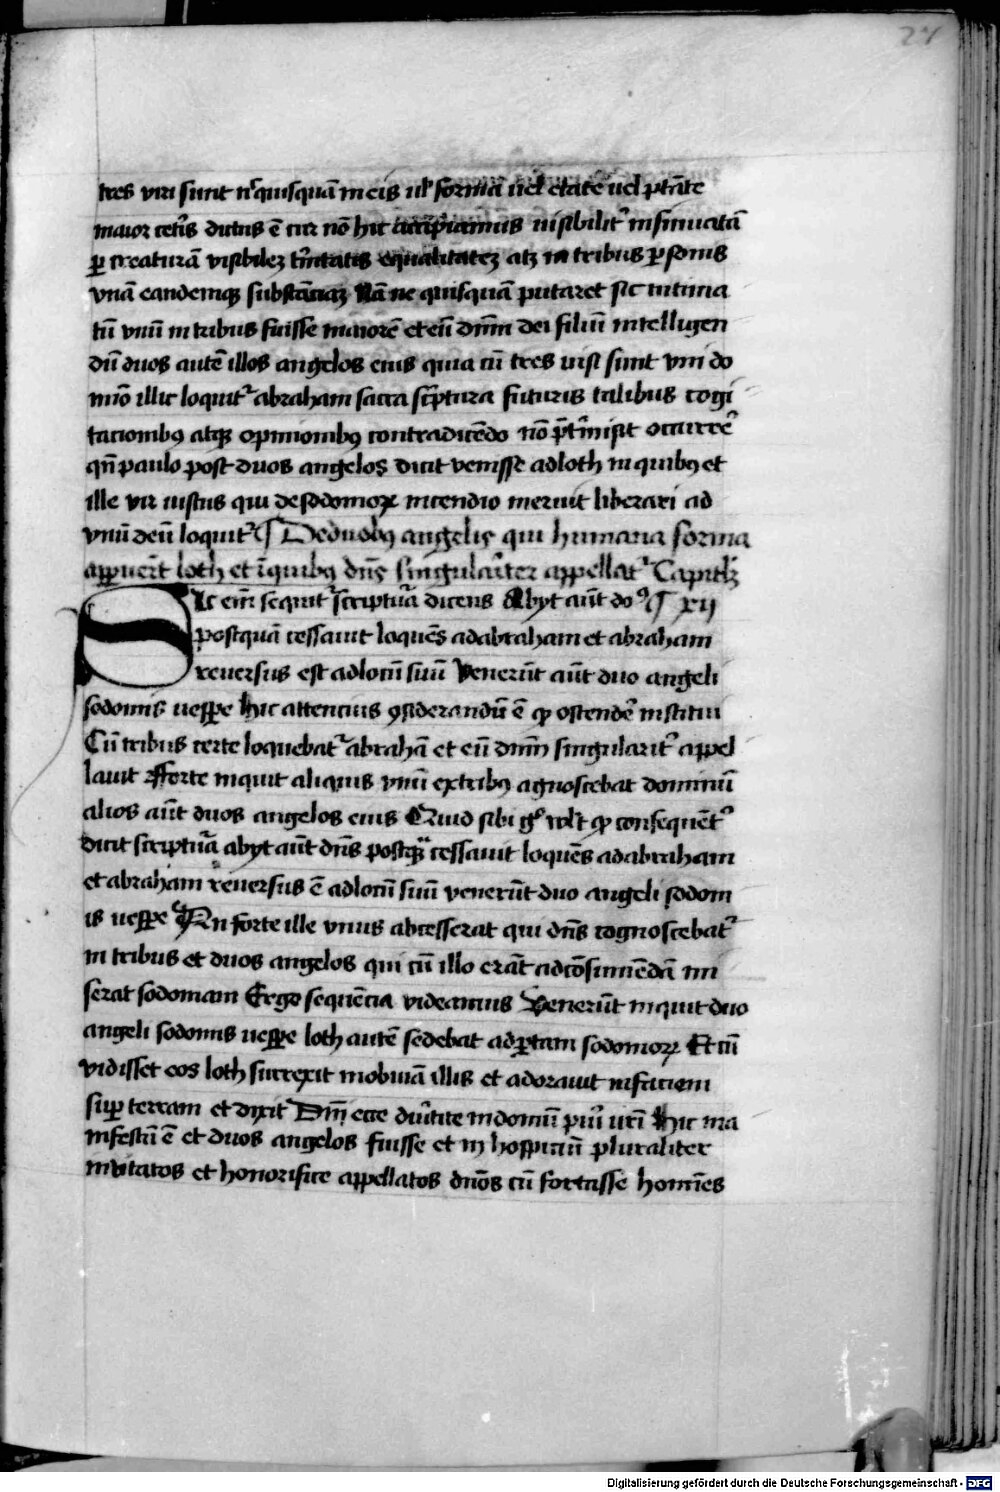 27
tres viri sunt nͨ quisquā in eis ul' formā uel etate uel ptāte
maior ceteͬis dictus ē cur nō hic accipiamus uisibiliť insinuatā
ꝑ creaturā visibilez tͥnitatis equalitatez atz in tribus ꝑsonis
vnā eandemqꝫ substāciaꝫ Nā ne quisquā putaret sic intima
tū vnū in tribus fuisse maiorē et eū dnm̄ dei filiū intelligen
dū duos autē illos angelos eius quia cū tres visi sunt vni do
mīo illic loquit᷑ abraham sacra scͥptura futuris talibus cogi
tacionibꝫ atqꝫ opinionibꝫ contradicēdo nō p̄tͥmisit occurrē
qn̄ paulo post duos angelos dicit venisse ad loth in quibꝫ et
ille vir iustus qui de sodomoꝝ incendio meruit liberari ad
vnū deū loquit᷑ ¶ De duobꝫ angelis qui humana forma
apparuer̄t loth et ī quibꝫ dn̄s singulariter appellat᷑ Capitlꝫ
Sic eīm sequit᷑ scriptuͣra dicens Abyt aūt doꝰ ¶ xij
postquā cessauit loquēs ad abraham et abraham
reuersus est ad locū suū Venerūt aūt duo angeli
sodomis uesꝑe hic attencius ꝯsiderandū ē qͦ ostendē institui
Cū tribus certe loquebat᷑ abrahā et eū dnm̄ singulariť appel
lauit fforte inquit aliquis vnū ex tribꝫ agnoscebat dominū
alios aūt duos angelos eius Quid sibi gͦ vl't qͦ consequent᷑
dicit scriptuͣra abyt aūt dn̄s postqͣꝫ cessauit loquēs ad abraham
et abraham reuersus ē ad locū suū venerūt duo angeli sodom
is uesꝑe An forte ille vnus abcesserat qui dn̄s cognoscebat᷑
in tribus et duos angelos qui cū illo erāt ad cōsumēdā mi
serat sodomam Ergo sequēcia videamus Venerūt inquit duo
angeli sodomis uesꝑe loth autē sedebat ad portam sodomoꝝ Et cū
vidisset eos loth surrexit in obuiā illis et adorauit in faciem
suꝑ terram et dixit Dnī ecce diuͥtite in domū puīͥ urī Hic ma
nifestū ē et duos angelos fuisse et in hospiciū pluraliter
inuitatos et honorifice appellatos dnōs cū fortasse homīes
Digitalisierung gefördert durch die Deutsche Forschungsgemeinschaft - DFG